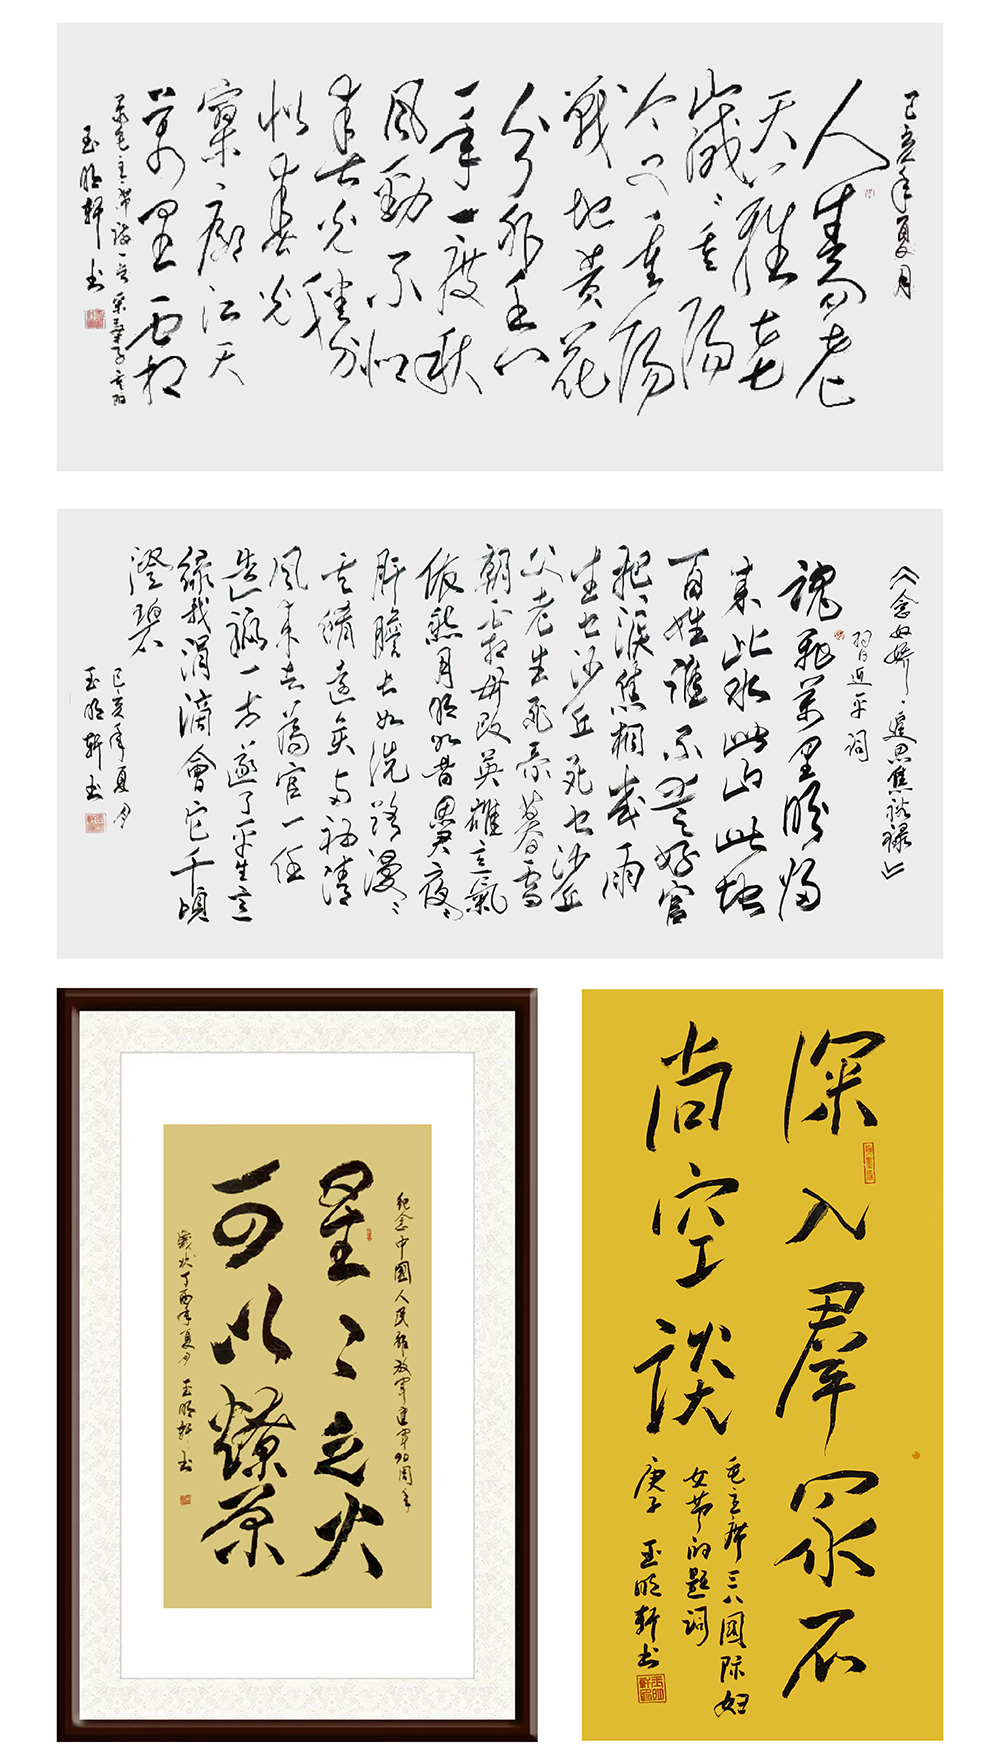 己亥年夏月
人生易老
天難老
歲〻重陽
今又重陽
戰地黄花
分外香
一年一度秋
風勁不似
春光勝似
似春光
寥廓江天
萬里霜
录毛主席詞一首采桑子重阳
玉明軒书
《念奴娇·追思焦裕禄》
習近平詞
魂飛萬里盼归
來此水此山此地
百姓誰不愛好官
把淚焦桐成雨
生也沙丘死也沙丘
父老生死系暮雪
朝霜毋改英雄意氣
依然月明如昔思君夜〻
肝膽长如洗路漫〻
其修遠矣兩袖清
風來去為官一任
造福一方遂了平生意
綠我涓滴會它千頃
澄碧
己亥年夏月
玉明軒书
紀念中國人民解放軍建軍90周年
星〻之火
可以燎原
歲次丁酉年夏月 玉明軒书
深入羣众不
尚空談
毛主席三八国际妇
女节的題詞
庚子 玉明軒书